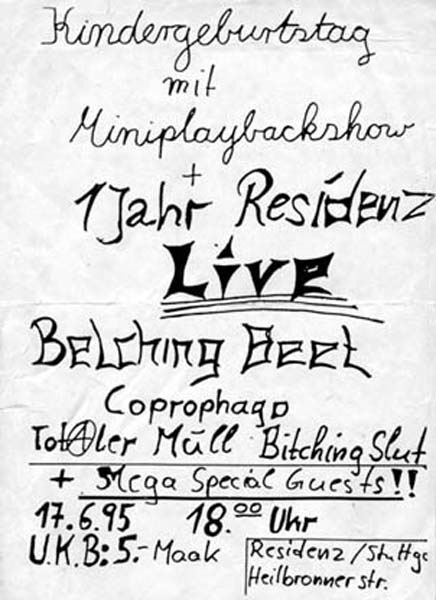 Kindergeburtstag
mit
Miniplaybackshow
+
1 Jahr Residenz
Live
Belching Beet
Coprophago
TotAler Müll Bitching Slut
+ Mega Special Guests!!
17.6.95 18.00 Uhr
U.K.B: 5.- Maak
Residenz / Stuttg
Heilbronnerstr.